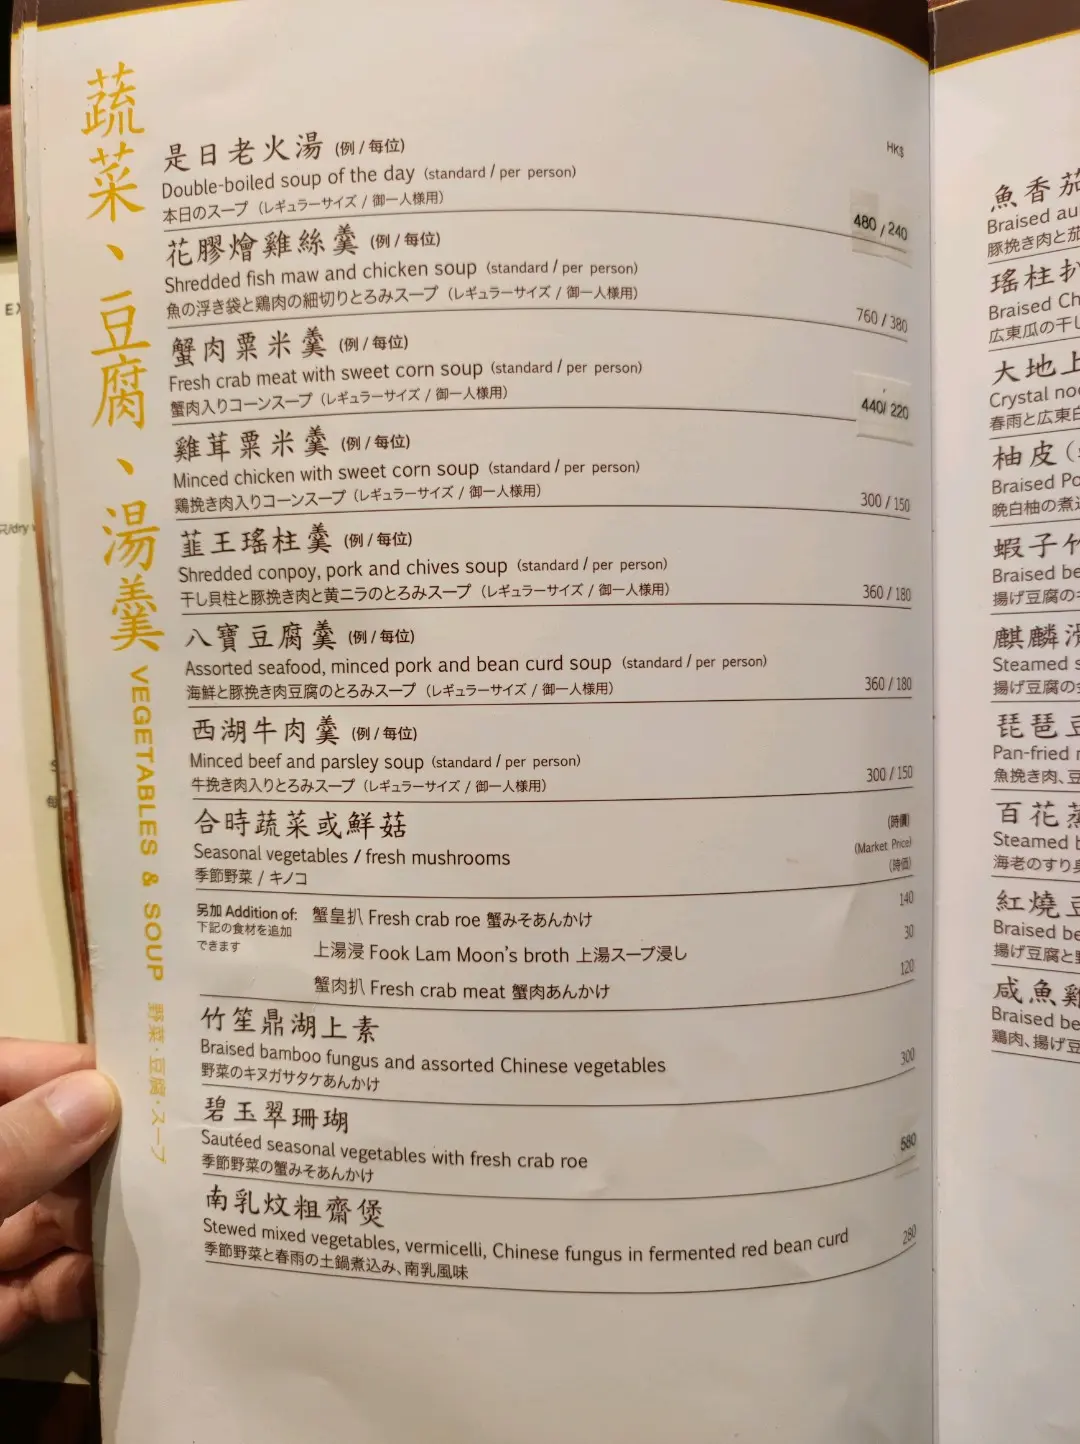 蔬菜、豆腐、湯羹 VEGETABLES & SOUP 野菜・豆腐・スープ
HK$
是日老火湯 (例 / 每位)
Double-boiled soup of the day (standard / per person)
本日のスープ (レギュラーサイズ / 御一人様用)
480 / 240
花膠燴雞絲羹 (例 / 每位)
Shredded fish maw and chicken soup (standard / per person)
魚の浮き袋と鶏肉の細切りとろみスープ (レギュラーサイズ / 御一人様用)
760 / 380
蟹肉粟米羹 (例 / 每位)
Fresh crab meat with sweet corn soup (standard / per person)
蟹肉入りコーンスープ (レギュラーサイズ / 御一人様用)
440/ 220
雞茸粟米羹 (例 / 每位)
Minced chicken with sweet corn soup (standard / per person)
鶏挽き肉入りコーンスープ (レギュラーサイズ / 御一人様用)
300 / 150
韮王瑤柱羹 (例 / 每位)
Shredded conpoy, pork and chives soup (standard / per person)
干し貝柱と豚挽き肉と黄ニラのとろみスープ (レギュラーサイズ / 御一人様用)
360 / 180
八寶豆腐羹 (例 / 每位)
Assorted seafood, minced pork and bean curd soup (standard / per person)
海鮮と豚挽き肉豆腐のとろみスープ (レギュラーサイズ / 御一人様用)
360 / 180
西湖牛肉羹 (例 / 每位)
Minced beef and parsley soup (standard / per person)
牛挽き肉入りとろみスープ (レギュラーサイズ / 御一人様用)
300 / 150
合時蔬菜或鮮菇
(時價)
Seasonal vegetables / fresh mushrooms
(Market Price)
季節野菜 / キノコ
(時価)
另加 Addition of:
下記の食材を追加
できます
蟹皇扒 Fresh crab roe 蟹みそあんかけ
140
上湯浸 Fook Lam Moon's broth 上湯スープ浸し
30
蟹肉扒 Fresh crab meat 蟹肉あんかけ
120
竹笙鼎湖上素
Braised bamboo fungus and assorted Chinese vegetables
野菜のキヌガサタケあんかけ
300
碧玉翠珊瑚
Sautéed seasonal vegetables with fresh crab roe
季節野菜の蟹みそあんかけ
580
南乳炆粗齋煲
Stewed mixed vegetables, vermicelli, Chinese fungus in fermented red bean curd
季節野菜と春雨の土鍋煮込み、南乳風味
280
魚香茄
Braised au
豚挽き肉と茄
瑤柱扒
Braised Ch
広東瓜の干し
大地上
Crystal noo
春雨と広東白
柚皮
Braised Po
晩白柚の煮込
蝦子竹
Braised be
揚げ豆腐の
麒麟滑
Steamed s
揚げ豆腐の
琵琶豆
Pan-fried m
魚挽き肉、豆
百花蒸
Steamed b
海老のすり身
紅燒豆
Braised be
揚げ豆腐と野
咸魚雞
Braised be
鶏肉、揚げ豆